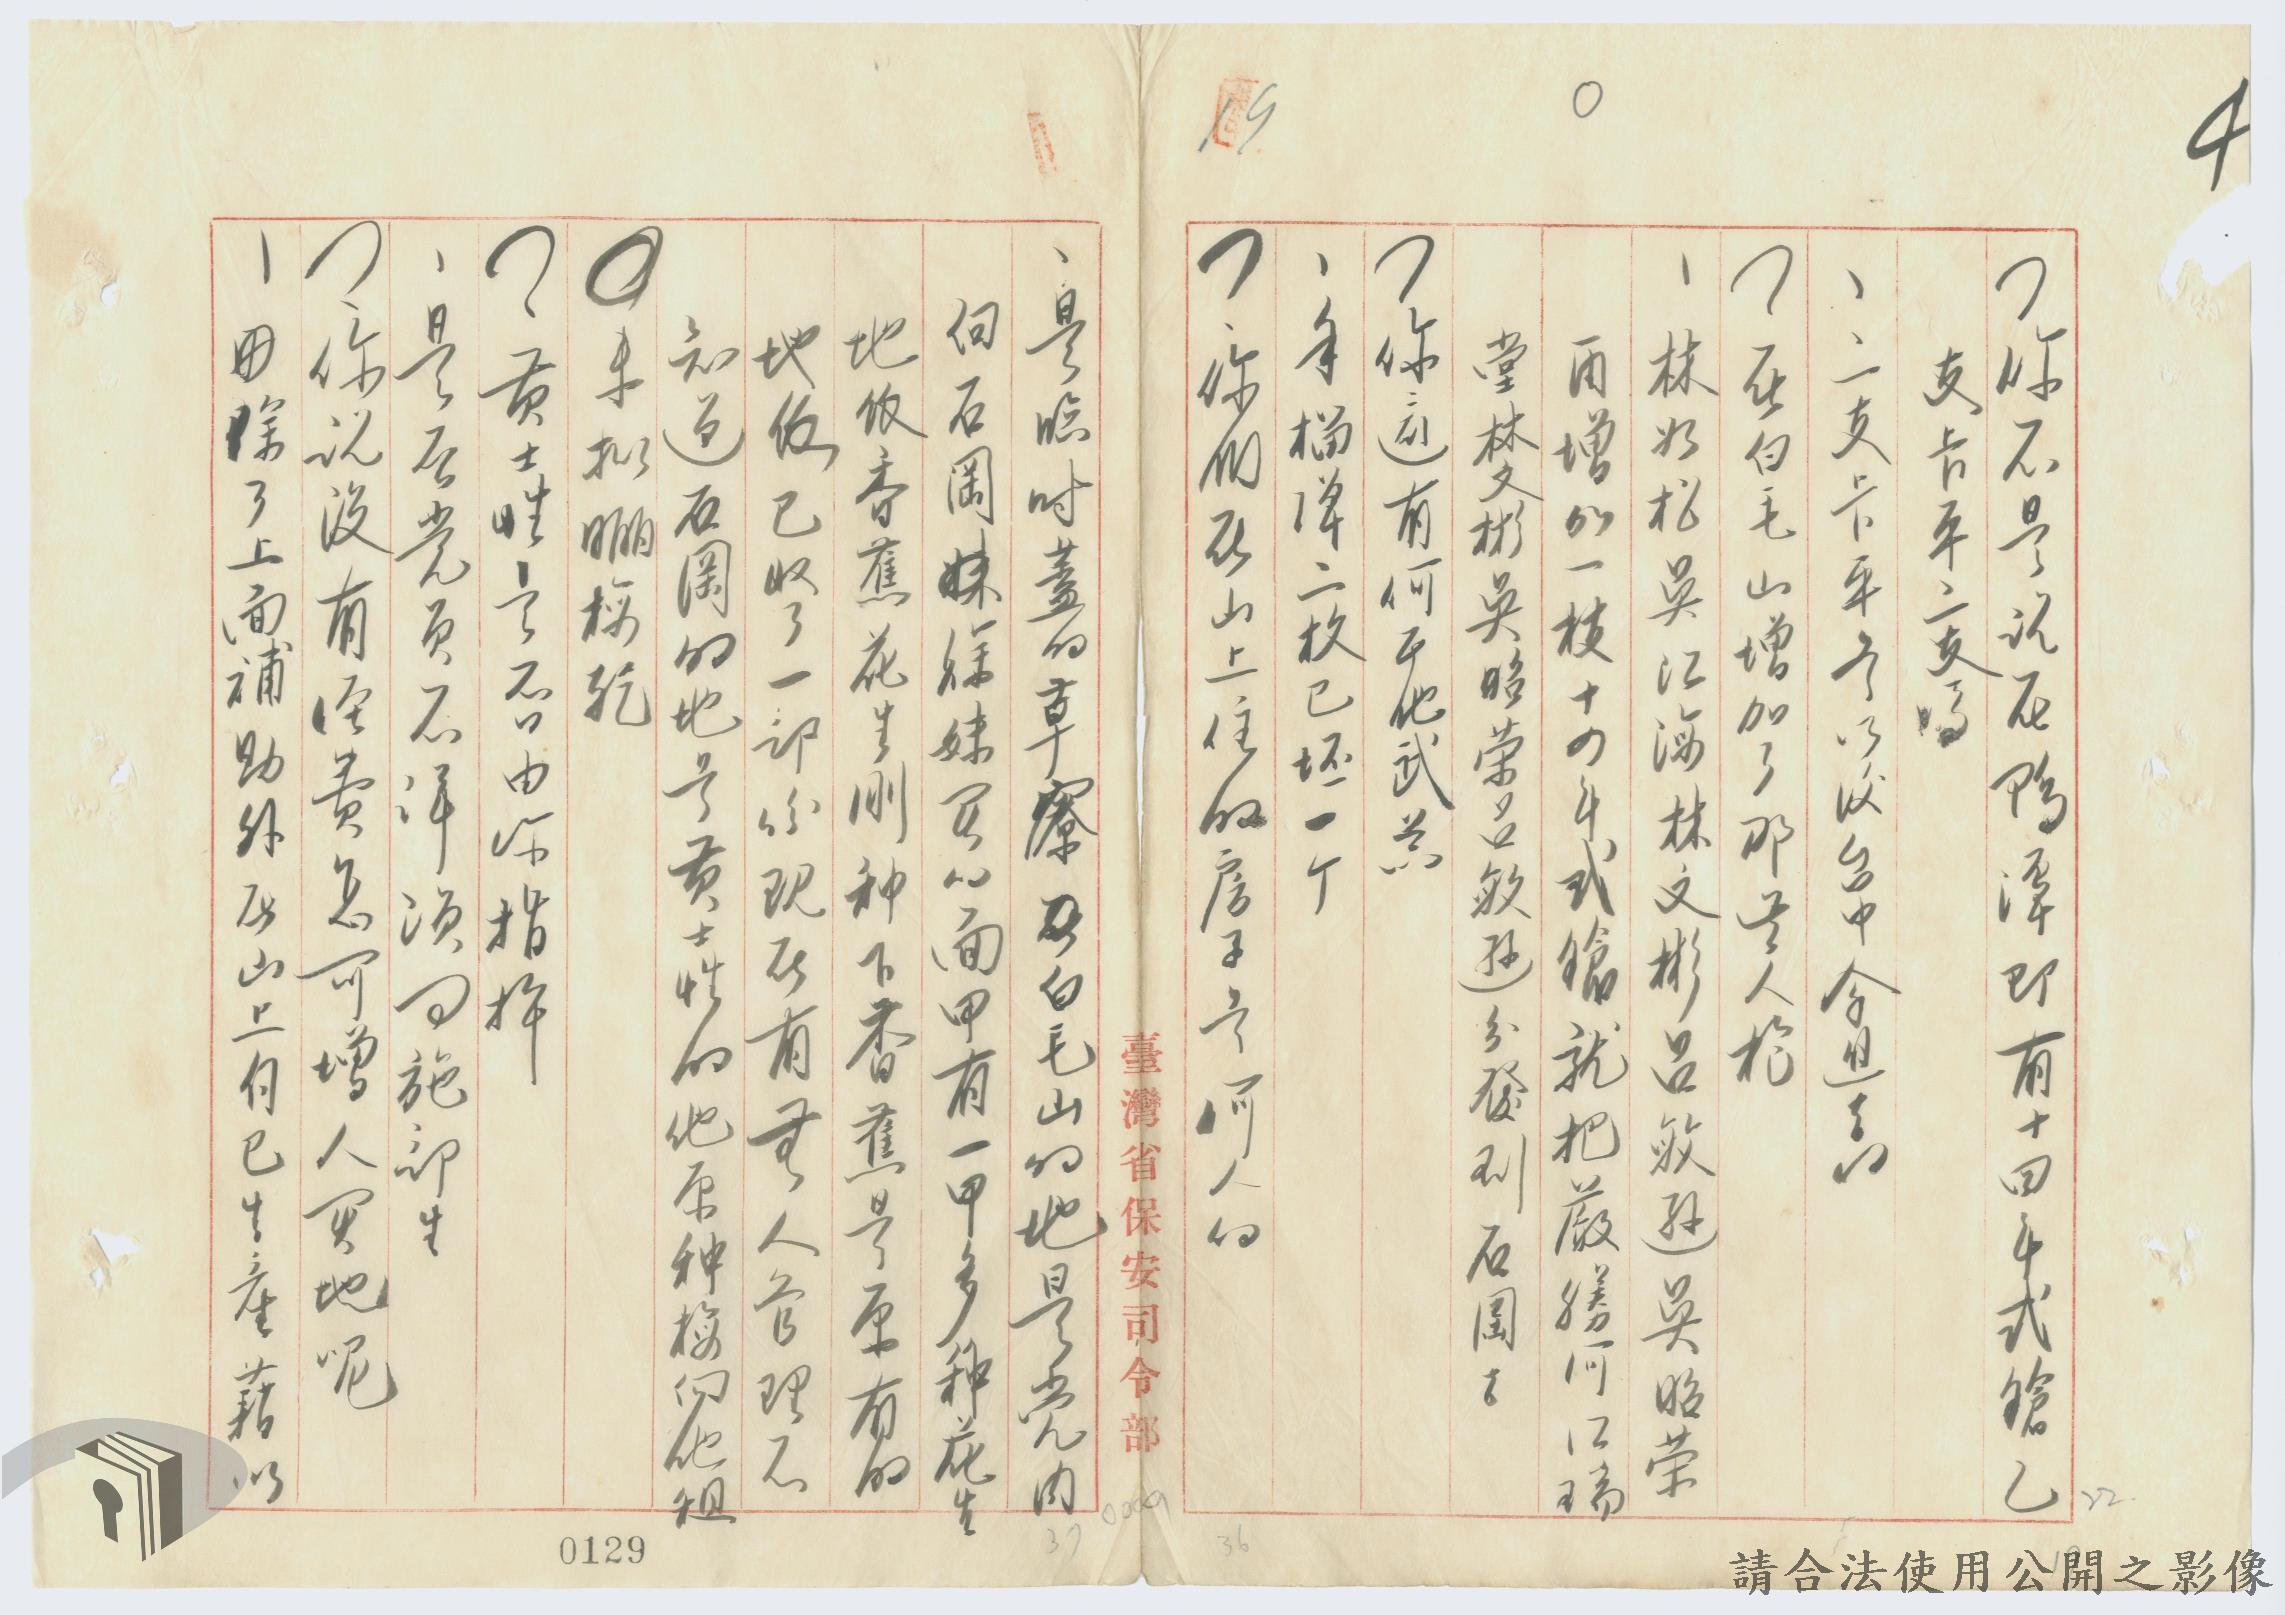 4
0
19
フ你不是說在鴨潭即有十四年式鎗乙
支卡平二支嗎
、二支卡平是以後台中令退去的
フ在白毛山增加了那些人槍
、林如松吳江海林文彬呂敏遜吳昭荣
再增加一枝十四年式鎗就把嚴勝何江瑞
堂林文彬吳昭荣呂敏遜分發到石圍去
フ、你還有何其他武器
、手榴弹二枚已坯一个
フ、你們在山上住的房子是何人的
臺灣省保安司令部
、是臨时蓋的草寮在白毛山的地是党內
向石岡妹妹買 面甲有一甲多种花生
地 香蕉花生剛种下香蕉是原有的
地 已收了一部份现在有無人管理不
知道石岡的地是黃士性的他原种梅向他租
未 梅乾
フ、黃士性是否由你指挥
、是否党員不详須问施部生
フ、你說没有经费怎可增人買地呢
、田除了上面補助外在山上自己生產藉以
0129
36
37
22
請合法使用公開之影像